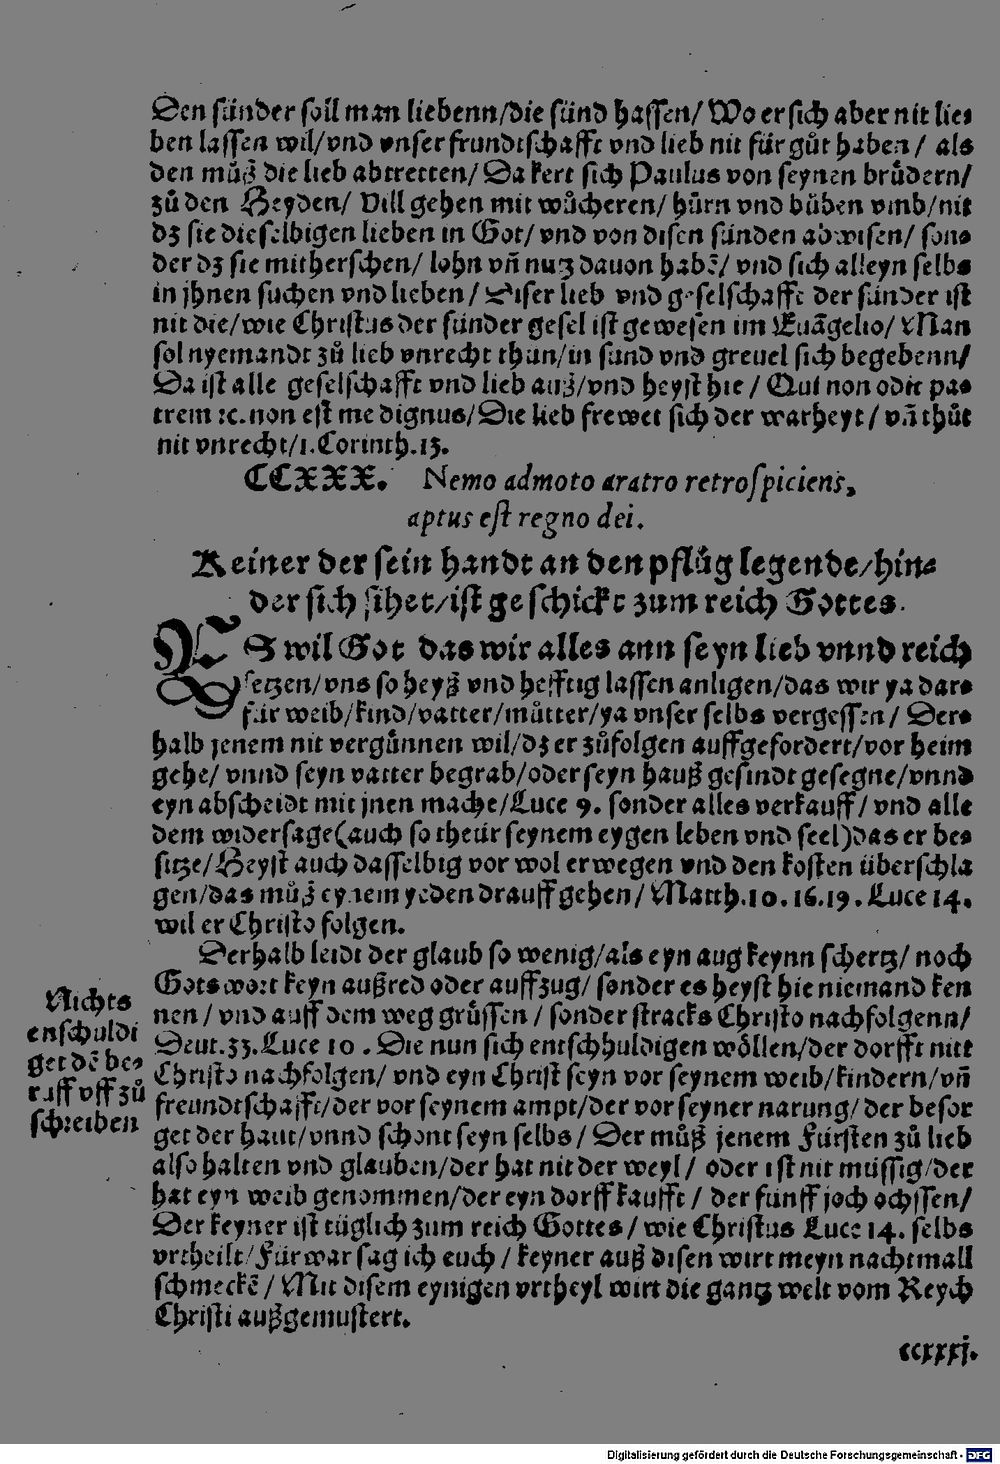 Den sünder soll man liebenn/die sünd hassen/ Wo er sich aber nit lie⸗
ben lassen wil/vnd vnser frundtschafft vnd lieb nit für gůt haben/ als
den můß die lieb abtretten/ Da kert sich Paulus von seynen brůdern/
zů den Heyden/ Vill gehen mit wůcheren/ hůrn vnd bůben vmb/nit
dz sie dieselbigen lieben in Got/ vnd von disen sünden abwisen/ son⸗
der dz sie mitherschen/ lohn vñ nutz dauon habē/ vnd sich alleyn selbs
in jhnen suchen vnd lieben/ Diser lieb vnd geselschafft der sünder ist
nit die/wie Christus der sünder gesel ist gewesen im Euãgelio/ Man
sol nyemandt zů lieb vnrecht thun/in sund vnd greuel sich begebenn/
Da ist alle geselschafft vnd lieb auß/vnd heyst hie/ Qui non odit pa⸗
trem ꝛc. non est me dignus/Die lieb frewet sich der warheyt/ vñ thůt
nit vnrecht/1. Corinth.13.
CCXXX. Nemo admoto aratro retrospiciens,
aptus est regno dei.
Keiner der sein handt an den pflůg legende/hin⸗
der sich sihet/ist geschickt zum reich Gottes.
ES wil Got das wir alles ann seyn lieb vnnd reich
setzen/vns so heyß vnd hefftig lassen anligen/das wir ya dar⸗
für weib/kind/vatter/můtter/ya vnser selbs vergessen/ Der⸗
halb jenem nit vergünnen wil/dz er zůfolgen auffgefordert/vor heim
gehe/ vnnd seyn vatter begrab/oder seyn hauß gesindt gesegne/vnnd
eyn abscheidt mit jnen mache/Luce 9. sonder alles verkauff/ vnd alle
dem widersage(auch so theür seynem eygen leben vnd seel)das er be⸗
sitze/Heyst auch dasselbig vor wol erwegen vnd den kosten überschla
gen/das můß eynem yeden drauff gehen/ Matth.10.16.19. Luce 14.
wil er Christo folgen.
Derhalb leidt der glaub so wenig/als eyn aug keynn schertz/ noch
Gots wort keyn außred oder auffzug/ sonder es heyst hie niemand ken
nen/ vnd auff dem weg grüssen/ sonder stracks Christo nachfolgenn/
Deut.33. Luce 10. Die nun sich entschhuldigen wöllen/der dorfft nitt
Christo nachfolgen/ vnd eyn Christ seyn vor seynem weib/kindern/vñ
freundtschafft/der vor seynem ampt/der vor seyner narung/ der besor
get der haut/vnnd schont seyn selbs/ Der můß jenem Fürsten zů lieb
also halten vnd glauben/der hat nit der weyl/ oder ist nit müssig/der
hat eyn weib genommen/der eyn dorff kaufft/ der fünff joch ochssen/
Der keyner ist tüglich zum reich Gottes/ wie Christus Luce 14. selbs
vrtheilt/Für war sag ich euch/ keyner auß disen wirt meyn nachtmall
schmeckē/ Mit disem eynigen vrtheyl wirt die gantz welt vom Reych
Christi außgemustert.
Nichts
enschuldi
get dē be⸗
ruff vff zů
schreiben
ccxxxj.
Digitalisierung gefördert durch die Deutsche Forschungsgemeinschaft - DFG